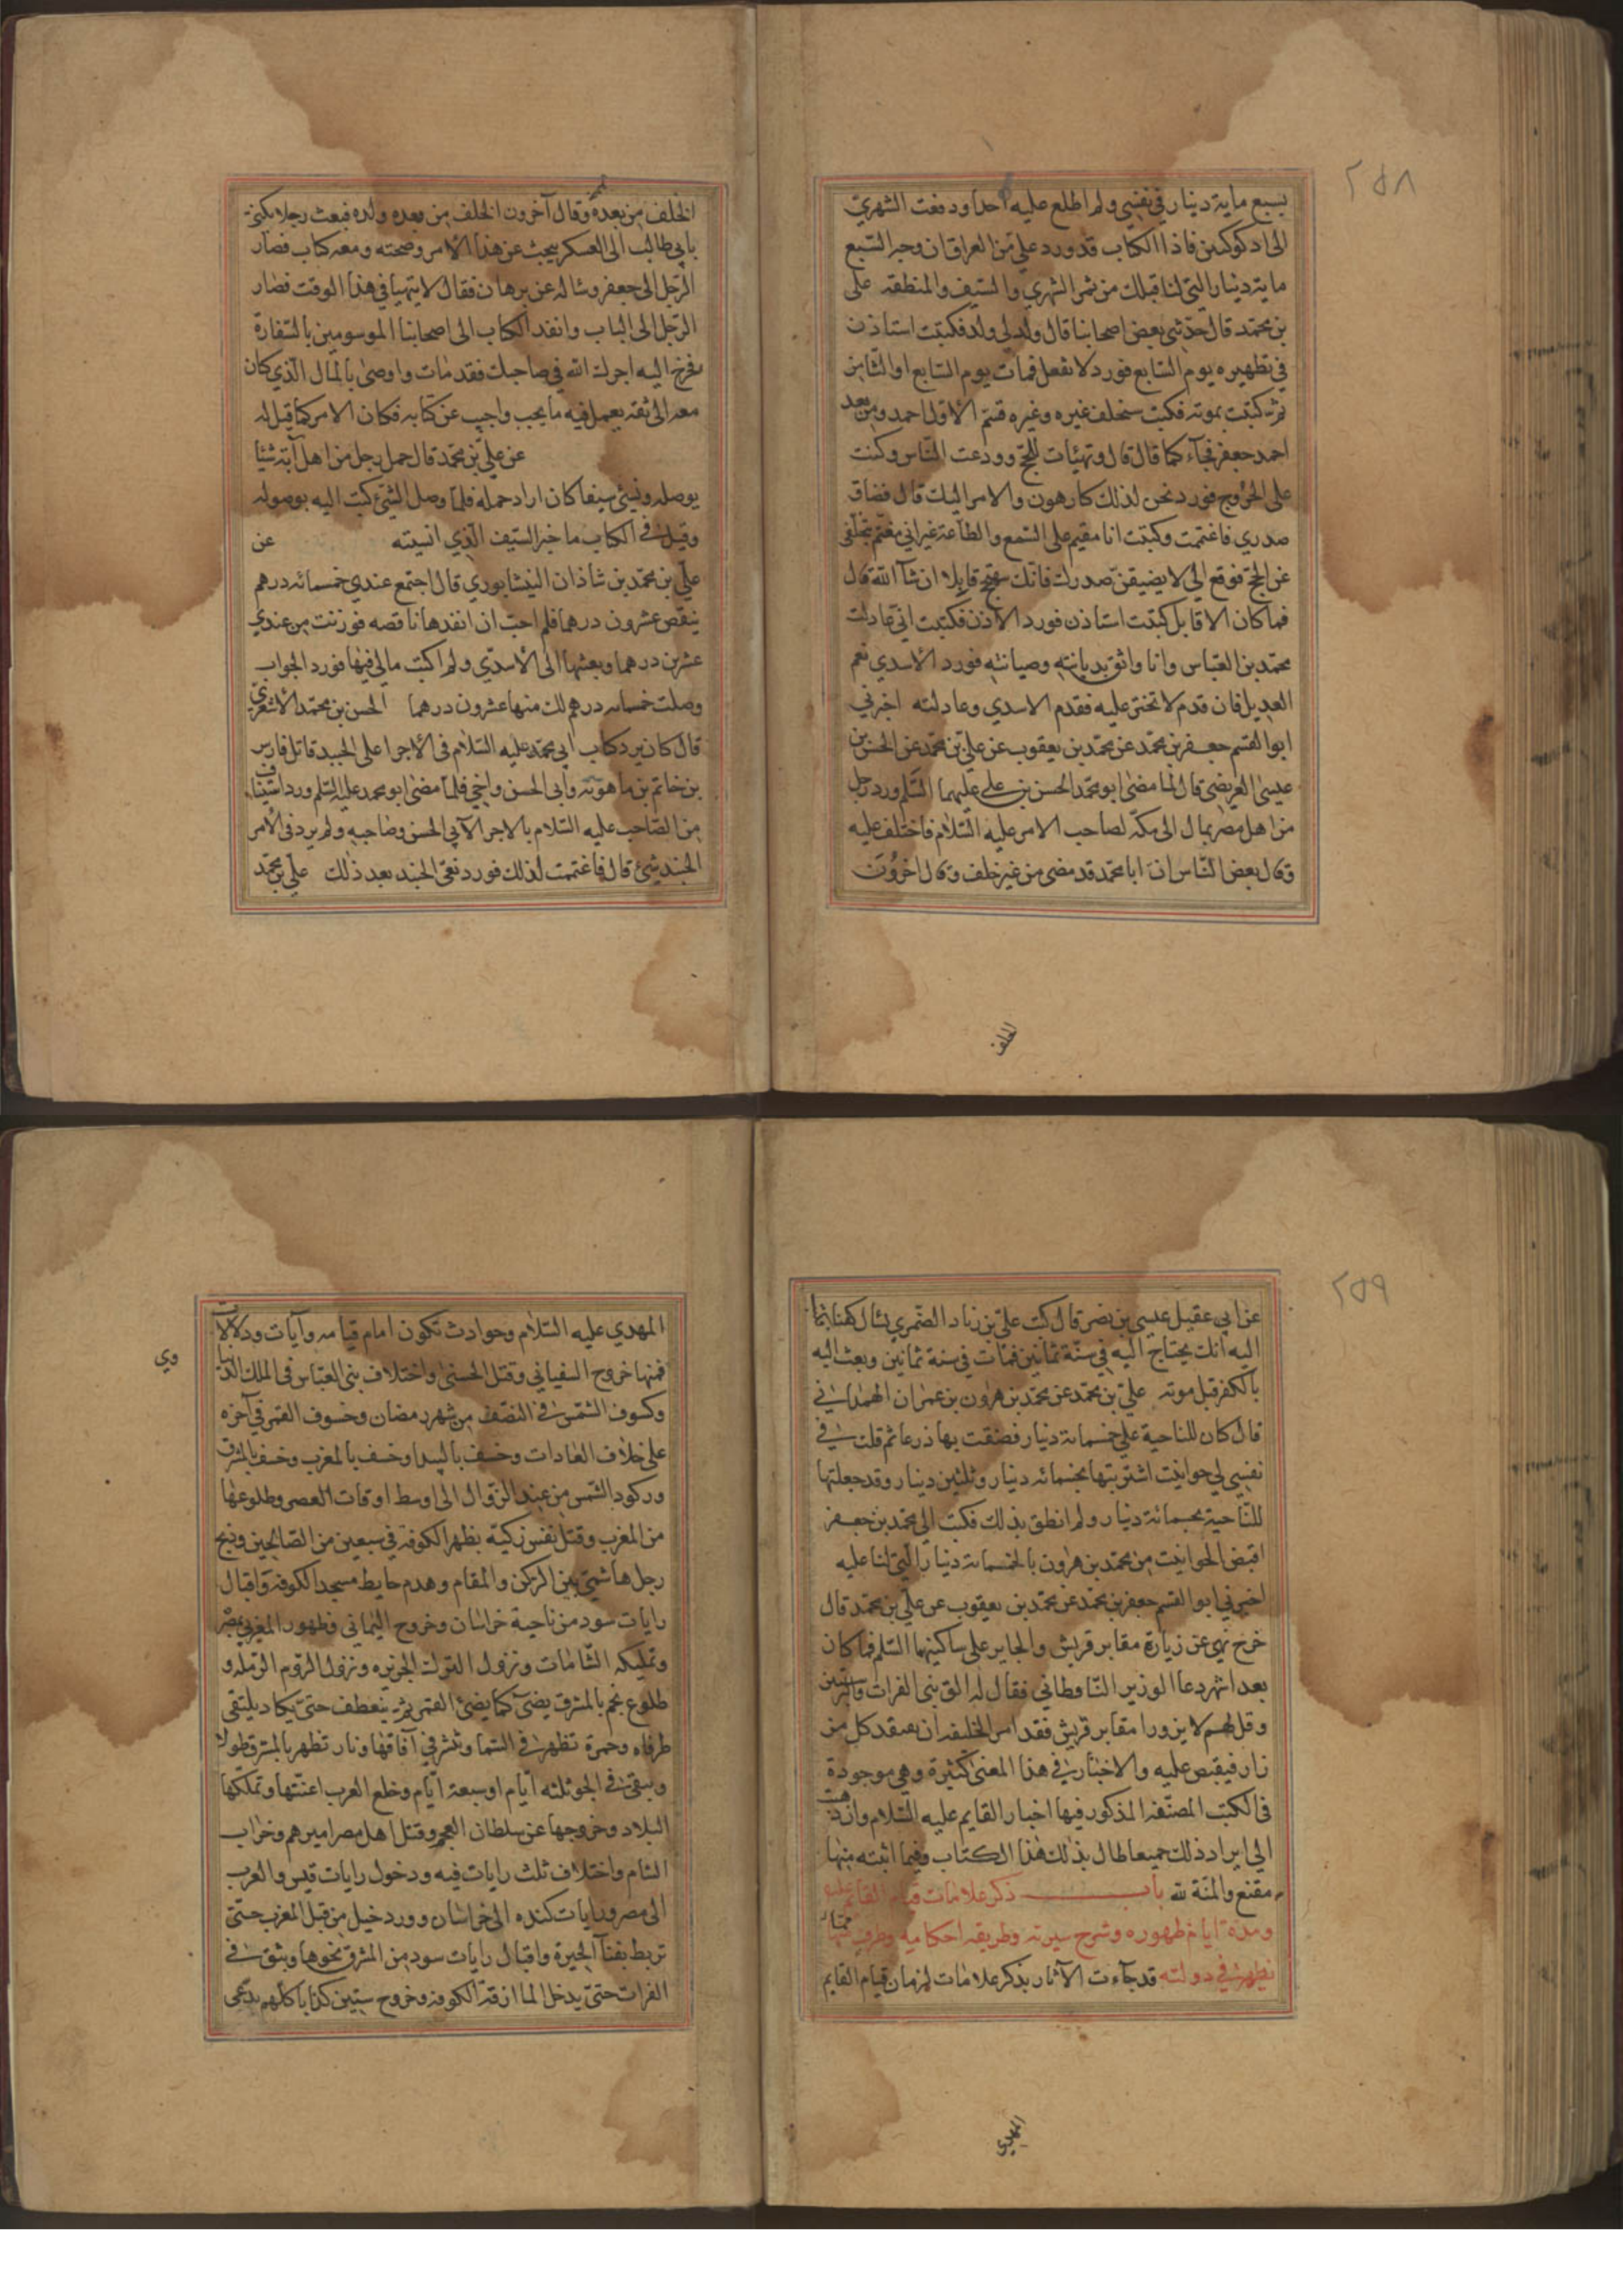 ٢٥٨
بسبع ماية دينار في نفسي ولم اطلع عليه احدا ودفعت الشهري
الى اذكوكين فاذا الكتاب قد ورد علي من العراق ان وجه السبع
ماية دينار التي لنا قبلك من ثمن الشهري والسيف والمنطقة علي
بن محمد قال حدثني بعض اصحابنا قال ولد لي ولد فكتبت استاذن
في تطهيره يوم السابع فورد لا تفعل فمات يوم السابع او الثامن
ثم كتبت بموته فكتب ستخلف غيره وغيره فتسم الاول احمد ومن بعد
احمد جعفر فجآء كما قال قال وتهيئات للحج وودعت الناس وكنت
على الخروج فورد نحن لذلك كارهون والامر اليك قال فضاق
صدري فاغتممت وكتبت انا مقيم على السمع والطاعة غير اني مغتم بتخلفي
عن الحج فوقع الي لا يضيقن صدرك فانك ستحج قابلا ان شآ الله قال
فما كان الا قابل كتبت استاذن فورد الاذن فكتبت اني عادلت
محمد بن العباس وانا واثق بديانته وصيانته فورد الاسدي نعم
العديل فان قدم لا تختر عليه فقدم الاسدي وعادلته اخبرني
ابو القسم جعفر بن محمد عن محمد بن يعقوب عن علي بن محمد عن الحسن بن
عيسى العريضي قال لما مضى ابو محمد الحسن بن علي عليهما السلم ورد رجل
من اهل مصر بمال الى مكة لصاحب الامر عليه السلام فاختلف عليه
وقال بعض الناس ان ابا محمد قد مضى من غير خلف وقال اخرون
الخلف
الخلف من بعده وقال آخرون الخلف من بعده ولده فبعث رجلا يكنى
بابي طالب الى العسكر يبحث عن هذا الامر وصحته ومعه كتاب فصار
الرجل الى جعفر وساله عن برهان فقال لا يتهيا في هذا الوقت فصار
الرجل الى الباب وانفد الكتاب الى اصحابنا الموسومين بالسفارة
فخرج اليه اجرك الله في صاحبك فقد مات واوصى بالمال الذي كان
معه الى ثقة يعمل فيه ما يحب واجيب عن كتابه فكان الامر كما قيل له
عن علي بن محمد قال حمل رجل من اهل آبة شيئا
يوصله ونسي سيفا كان اراد حمله فلما وصل الشئ كتب اليه بوصوله
وقيل في الكتاب ما خبر السيف الذي انسيته عن
علي بن محمد بن شاذان النيشابوري قال اجتمع عندي خمسمائه درهم
ينقص عشرون درهما فلم احب ان انفدها ناقصه فوزنت من عندي
عشرين درهما وبعثتها الى الاسدي ولم اكتب مالي فيها فورد الجواب
وصلت خمسمائه درهم لك منها عشرون درهما الحسن بن محمد الاشعري
قال كان يرد كتاب ابي محمد عليه السلام في الاجرا على الجنيد قاتل فارس
بن خاتم بن ماهويه وابي الحسن واخي فلما مضى ابو محمد عليه السلم ورد استيناف
من الصاحب عليه السلام بالاجر الابي الحسن وصاحبه ولم يرد في الامر
الجنيد شئ قال فاغتممت لذلك فورد نعي الجنيد بعد ذلك علي بن محمد
٢٥٩
عن ابي عقيل عيسى بن نصر قال كتب علي بن زياد الضمري يسال كفنا
اليه انك تحتاج اليه في سنة ثمانين فمات في سنة ثمانين وبعث اليه
بالكفن قبل موته علي بن محمد عن محمد بن هرون بن عمران الهمداني
قال كان للناحية علي خمسمائة دينار فضقت بها ذرعا ثم قلت في
نفسي لي حوانيت اشتريتها بخمسمائه دينار وثلثين دينار وقد جعلتها
للناحية بخمسمائة دينار ولم انطق بذلك فكتب الى محمد بن جعفر
اقبض الحوانيت من محمد بن هرون بالخمسمائة دينار التي لنا عليه
اخبرني ابو القسم جعفر بن محمد عن محمد بن يعقوب عن علي بن محمد قال
خرج نهي عن زيارة مقابر قريش والحاير على ساكنيهما السلم فلما كان
بعد اشهر دعا الوزير الناقطاني فقال له الق بني الفرات والبرسيين
وقل لهم لا يزوروا مقابر قريش فقد امر الخليفه ان يفتقد كل من
زار فيقبض عليه والاخبار في هذا المعنى كثيرة وهي موجودة
في الكتب المصنفة المذكور فيها اخبار القايم عليه السلام وان ذهبت
الى ايراد ذلك جميعا طال بذلك هذا الكتاب وفيما اثبته منها
مقنع والمنة لله باب ذكر علامات قيام القائم عليه
ومدة ايام ظهوره وشرح سيرته وطريقه احكامه وطرف مما
يظهر في دولته قد جآءت الآثار بذكر علامات لزمان قيام القايم
المهدي
المهدي عليه السلام وحوادث تكون امام قيامه وآيات ودلالات
فمنها خروج السفياني وقتل الحسني واختلاف بني العباس في الملك الدنيا
وي
وكسوف الشمس في النصف من شهر رمضان وخسوف القمر في آخره
على خلاف العادات وخسف بالبيدا وخسف بالمغرب وخسف بالمشرق
وركود الشمس من عند الزوال الى اوسط اوقات العصر وطلوعها
من المغرب وقتل نفس زكية بظهر الكوفة في سبعين من الصالحين وذبح
رجل هاشمي بين الركن والمقام وهدم حايط مسجد الكوفة واقبال
رايات سود من ناحية خراسان وخروج اليماني وظهور المغربي بمصر
وتملكه الشامات ونزول الترك الجزيره ونزول الروم الرمله و
طلوع نجم بالمشرق يضئ كما يضئ القمر ثم ينعطف حتى يكاد يلتقي
طرفاه وحمرة تظهر في السما وتنشر في آفاقها ونار تظهر بالمشرق طولا
وتبقى في الجو ثلثه ايام او سبعة ايام وخلع العرب اعنتها وتملكها
البلاد وخروجها عن سلطان العجم وقتل اهل مصر اميرهم وخراب
الشام واختلاف ثلث رايات فيه ودخول رايات قيس والعرب
الى مصر ورايات كنده الى خراسان وورد خيل من قبل المغرب حتى
تربط بفنآ الحيرة واقبال رايات سود من المشرق نحوها وبثق في
الفرات حتى يدخل الما ازقة الكوفه وخروج ستين كذابا كلهم يدعي